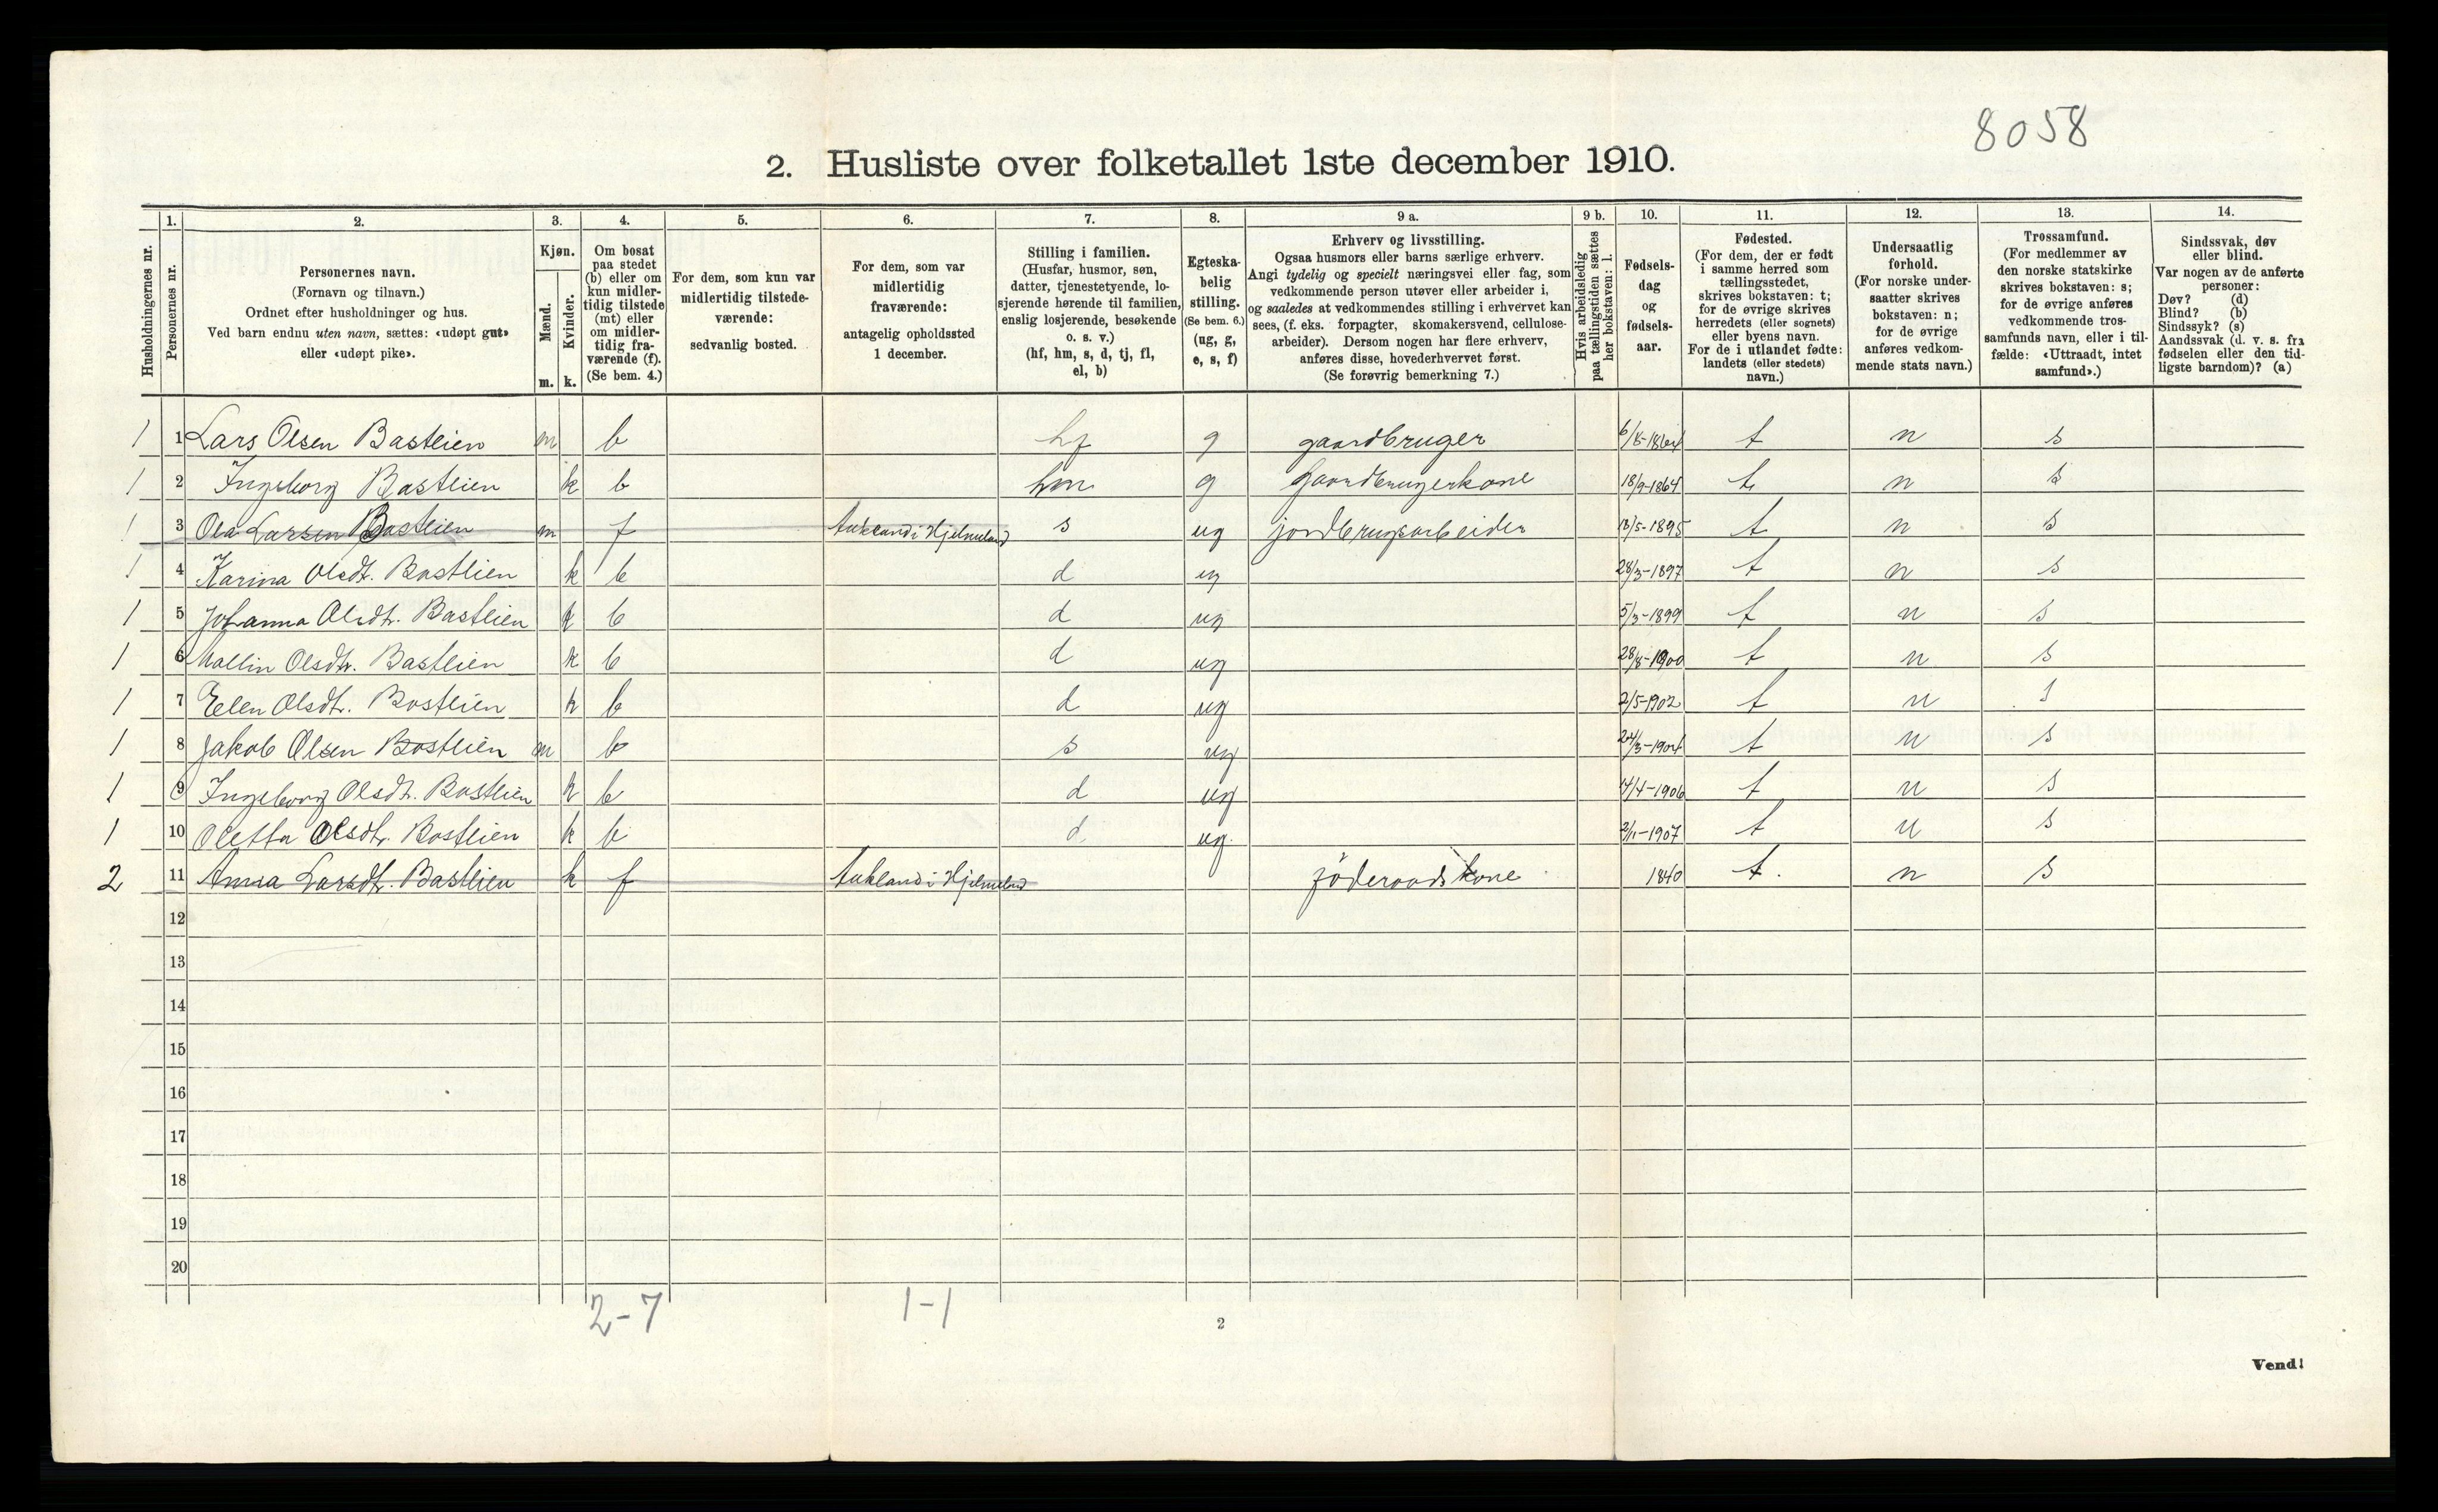 8058
2. Husliste over folketallet 1ste december 1910.
Husholdningernes nr.
1. Personernes nr.
2. Personernes navn.
(Fornavn og tilnavn.)
Ordnet efter husholdninger og hus.
Ved barn endnu uten navn, sættes: «udøpt gut»
eller «udøpt pike».
3. Kjøn.
Mænd. m.
Kvinder. k.
4. Om bosat
paa stedet
(b) eller om
kun midler-
tidig tilstede
(mt) eller
om midler-
tidig fra-
værende (f).
(Se bem. 4.)
5. For dem, som kun var
midlertidig tilstede-
værende:
sedvanlig bosted.
6. For dem, som var
midlertidig
fraværende:
antagelig opholdssted
1 december.
7. Stilling i familien.
(Husfar, husmor, søn,
datter, tjenestetyende, lo-
sjerende hørende til familien,
enslig losjerende, besøkende
o. s. v.)
(hf, hm, s, d, tj, fl,
el, b)
8. Egteska-
belig
stilling.
(Se bem. 6.)
(ug, g,
e, s, f)
9 a. Erhverv og livsstilling.
Ogsaa husmors eller barns særlige erhverv.
Angi tydelig og specielt næringsvei eller fag, som
vedkommende person utøver eller arbeider i,
og saaledes at vedkommendes stilling i erhvervet kan
sees, (f. eks. forpagter, skomakersvend, cellulose-
arbeider). Dersom nogen har flere erhverv,
anføres disse, hovederhvervet først.
(Se forøvrig bemerkning 7.)
9 b. Hvis arbeidsledig
paa tællingstiden sættes
her bokstaven: l.
10. Fødsels-
dag
og
fødsels-
aar.
11. Fødested.
(For dem, der er født
i samme herred som
tællingsstedet,
skrives bokstaven: t;
for de øvrige skrives
herredets (eller sognets)
eller byens navn.
For de i utlandet fødte:
landets (eller stedets)
navn.)
12. Undersaatlig
forhold.
(For norske under-
saatter skrives
bokstaven: n;
for de øvrige
anføres vedkom-
mende stats navn.)
13. Trossamfund.
(For medlemmer av
den norske statskirke
skrives bokstaven: s;
for de øvrige anføres
vedkommende tros-
samfunds navn, eller i til-
fælde: «Uttraadt, intet
samfund».)
14. Sindssvak, døv
eller blind.
Var nogen av de anførte
personer:
Døv? (d)
Blind? (b)
Sindssyk? (s)
Aandssvak (d. v. s. fra
fødselen eller den tid-
ligste barndom)? (a)
1 1 Lars Olsen Bastlien m b hf g gaardbruger 6/8-1864 t n s
1 2 Ingeborg Bastlien k b hm g gaardbrugerkone 18/9-1864 t n s
1 3 Ola Larsen Bastlien m f Aukland i Hjelmeland s ug jordbrugsarbeider 13/5-1895 t n s
1 4 Karina Olsdt. Bastlien k b d ug 28/3-1897 t n s
1 5 Johanna Olsdtr. Bastlien k b d ug 5/3-1899 t n s
1 6 Mallin Olsdtr. Bastlien k b d ug 28/8-1900 t n s
1 7 Elen Olsdtr. Bastlien k b d ug 2/5-1902 t n s
1 8 Jakob Olsen Bastlien m b s ug 24/3-1904 t n s
1 9 Ingeborg Olsdt. Bastlien k b d ug 14/4-1906 t n s
1 10 Oletta Olsdtr. Bastlien k b d ug. 2/11-1907 t n s
2 11 Anna Larsdt. Bastlien k f Aukland i Hjelmeland föderaadskone 1840 t. n s
12
13
14
15
16
17
18
19
20
2-7 1-1
2
Vend!